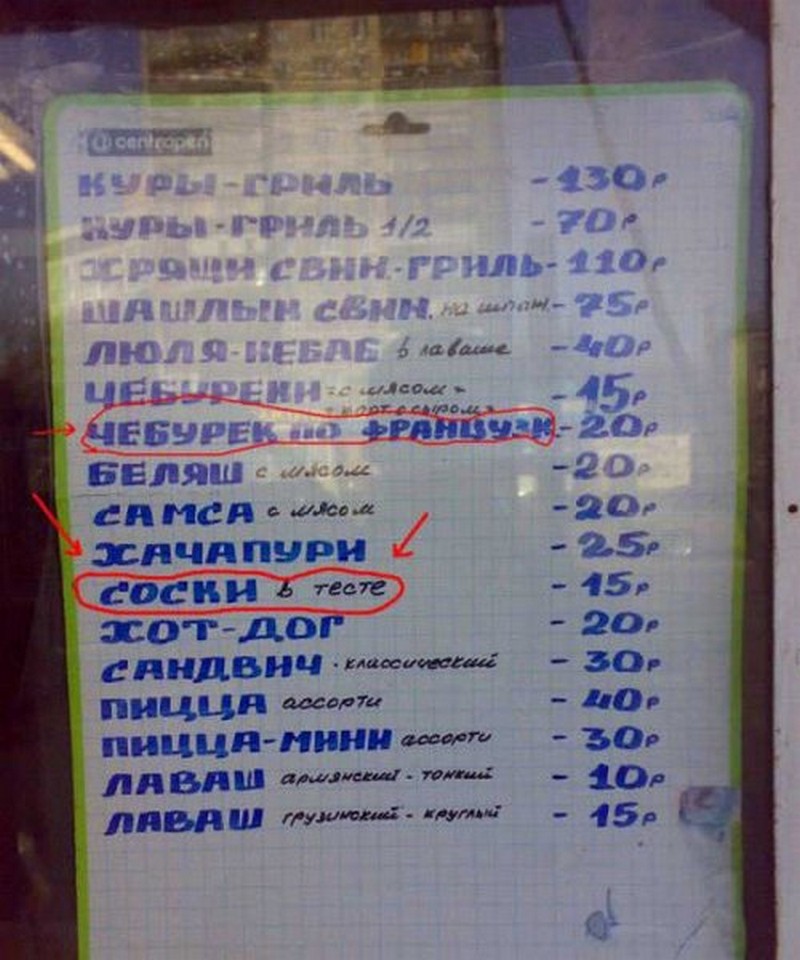 centropen
КУРЫ-ГРИЛЬ - 130р
КУРЫ-ГРИЛЬ 1/2 - 70р
ХРЯЩИ СВИН.-ГРИЛЬ - 110р
ШАШЛЫК СВИН. на шпаж. - 75р
ЛЮЛЯ-КЕБАБ в лаваше - 40р
ЧЕБУРЕКИ "с мясом" - 15р
"карт. с сыром"
ЧЕБУРЕК ПО ФРАНЦУЗКИ - 20р
БЕЛЯШ с мясом - 20р
САМСА с мясом - 20р
ХАЧАПУРИ - 25р
СОСКИ в тесте - 15р
ХОТ-ДОГ - 20р
САНДВИЧ · классический - 30р
ПИЦЦА ассорти - 40р
ПИЦЦА-МИНИ ассорти - 30р
ЛАВАШ армянский - тонкий - 10р
ЛАВАШ грузинский - круглый - 15р